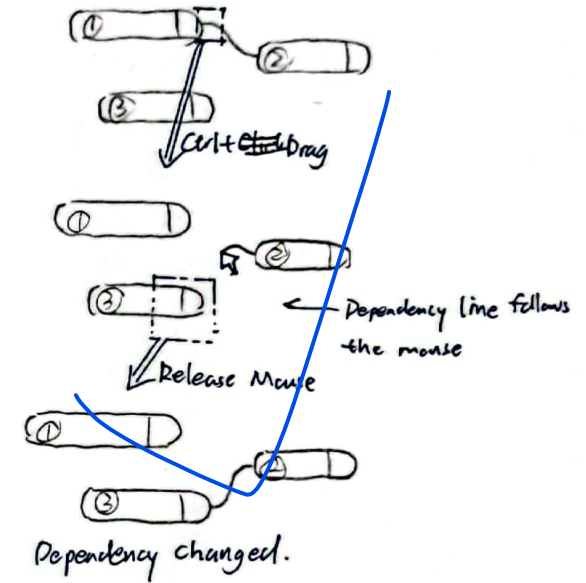 ①
②
③
Ctrl+Drag
①
②
③
Dependency line follows
the mouse
Release Mouse
①
③
Dependency changed.